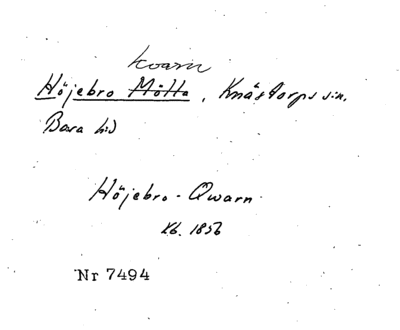 kvarn
Höjebro Mölla, Knästorps s:n.
Bara hd
Höjebro-Qwarn
Kb. 1856
Nr 7494